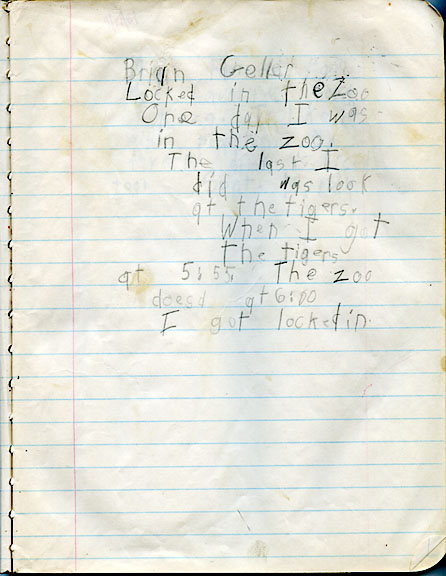 Brian Geller
Locked in the Zoo
One day I was
in the zoo.
The last I
did was look
at the tigers.
When I got
the tigers
at 5:55. The zoo
doesd at 6:00
I got lockedin.